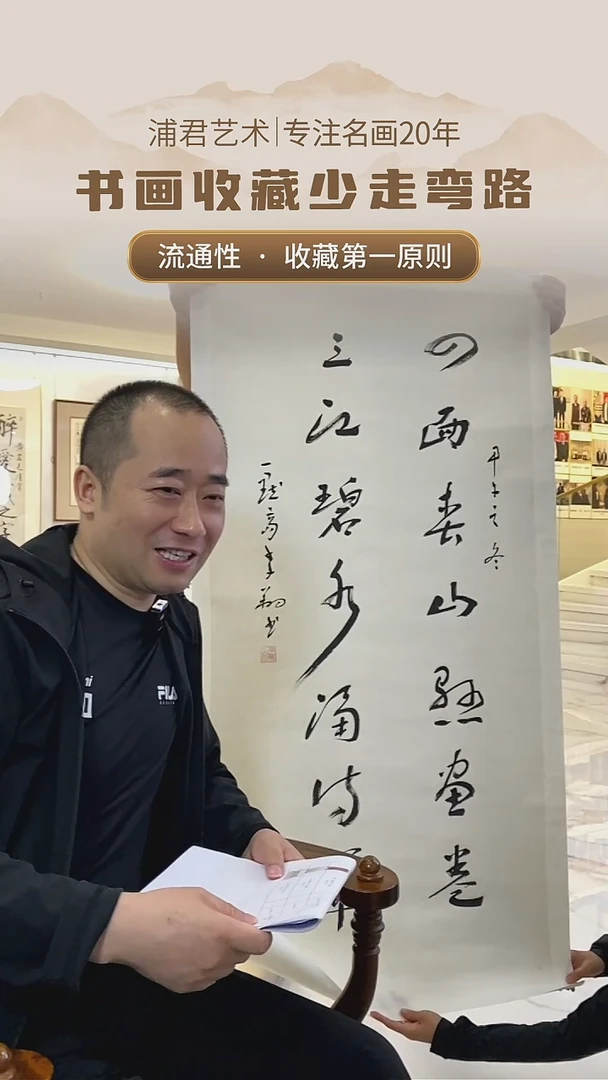 浦君艺术|专注名画20年
书画收藏少走弯路
流通性 · 收藏第一原则
甲午之冬
四面青山悬画卷
三江碧水涌诗
李翔书
FILA